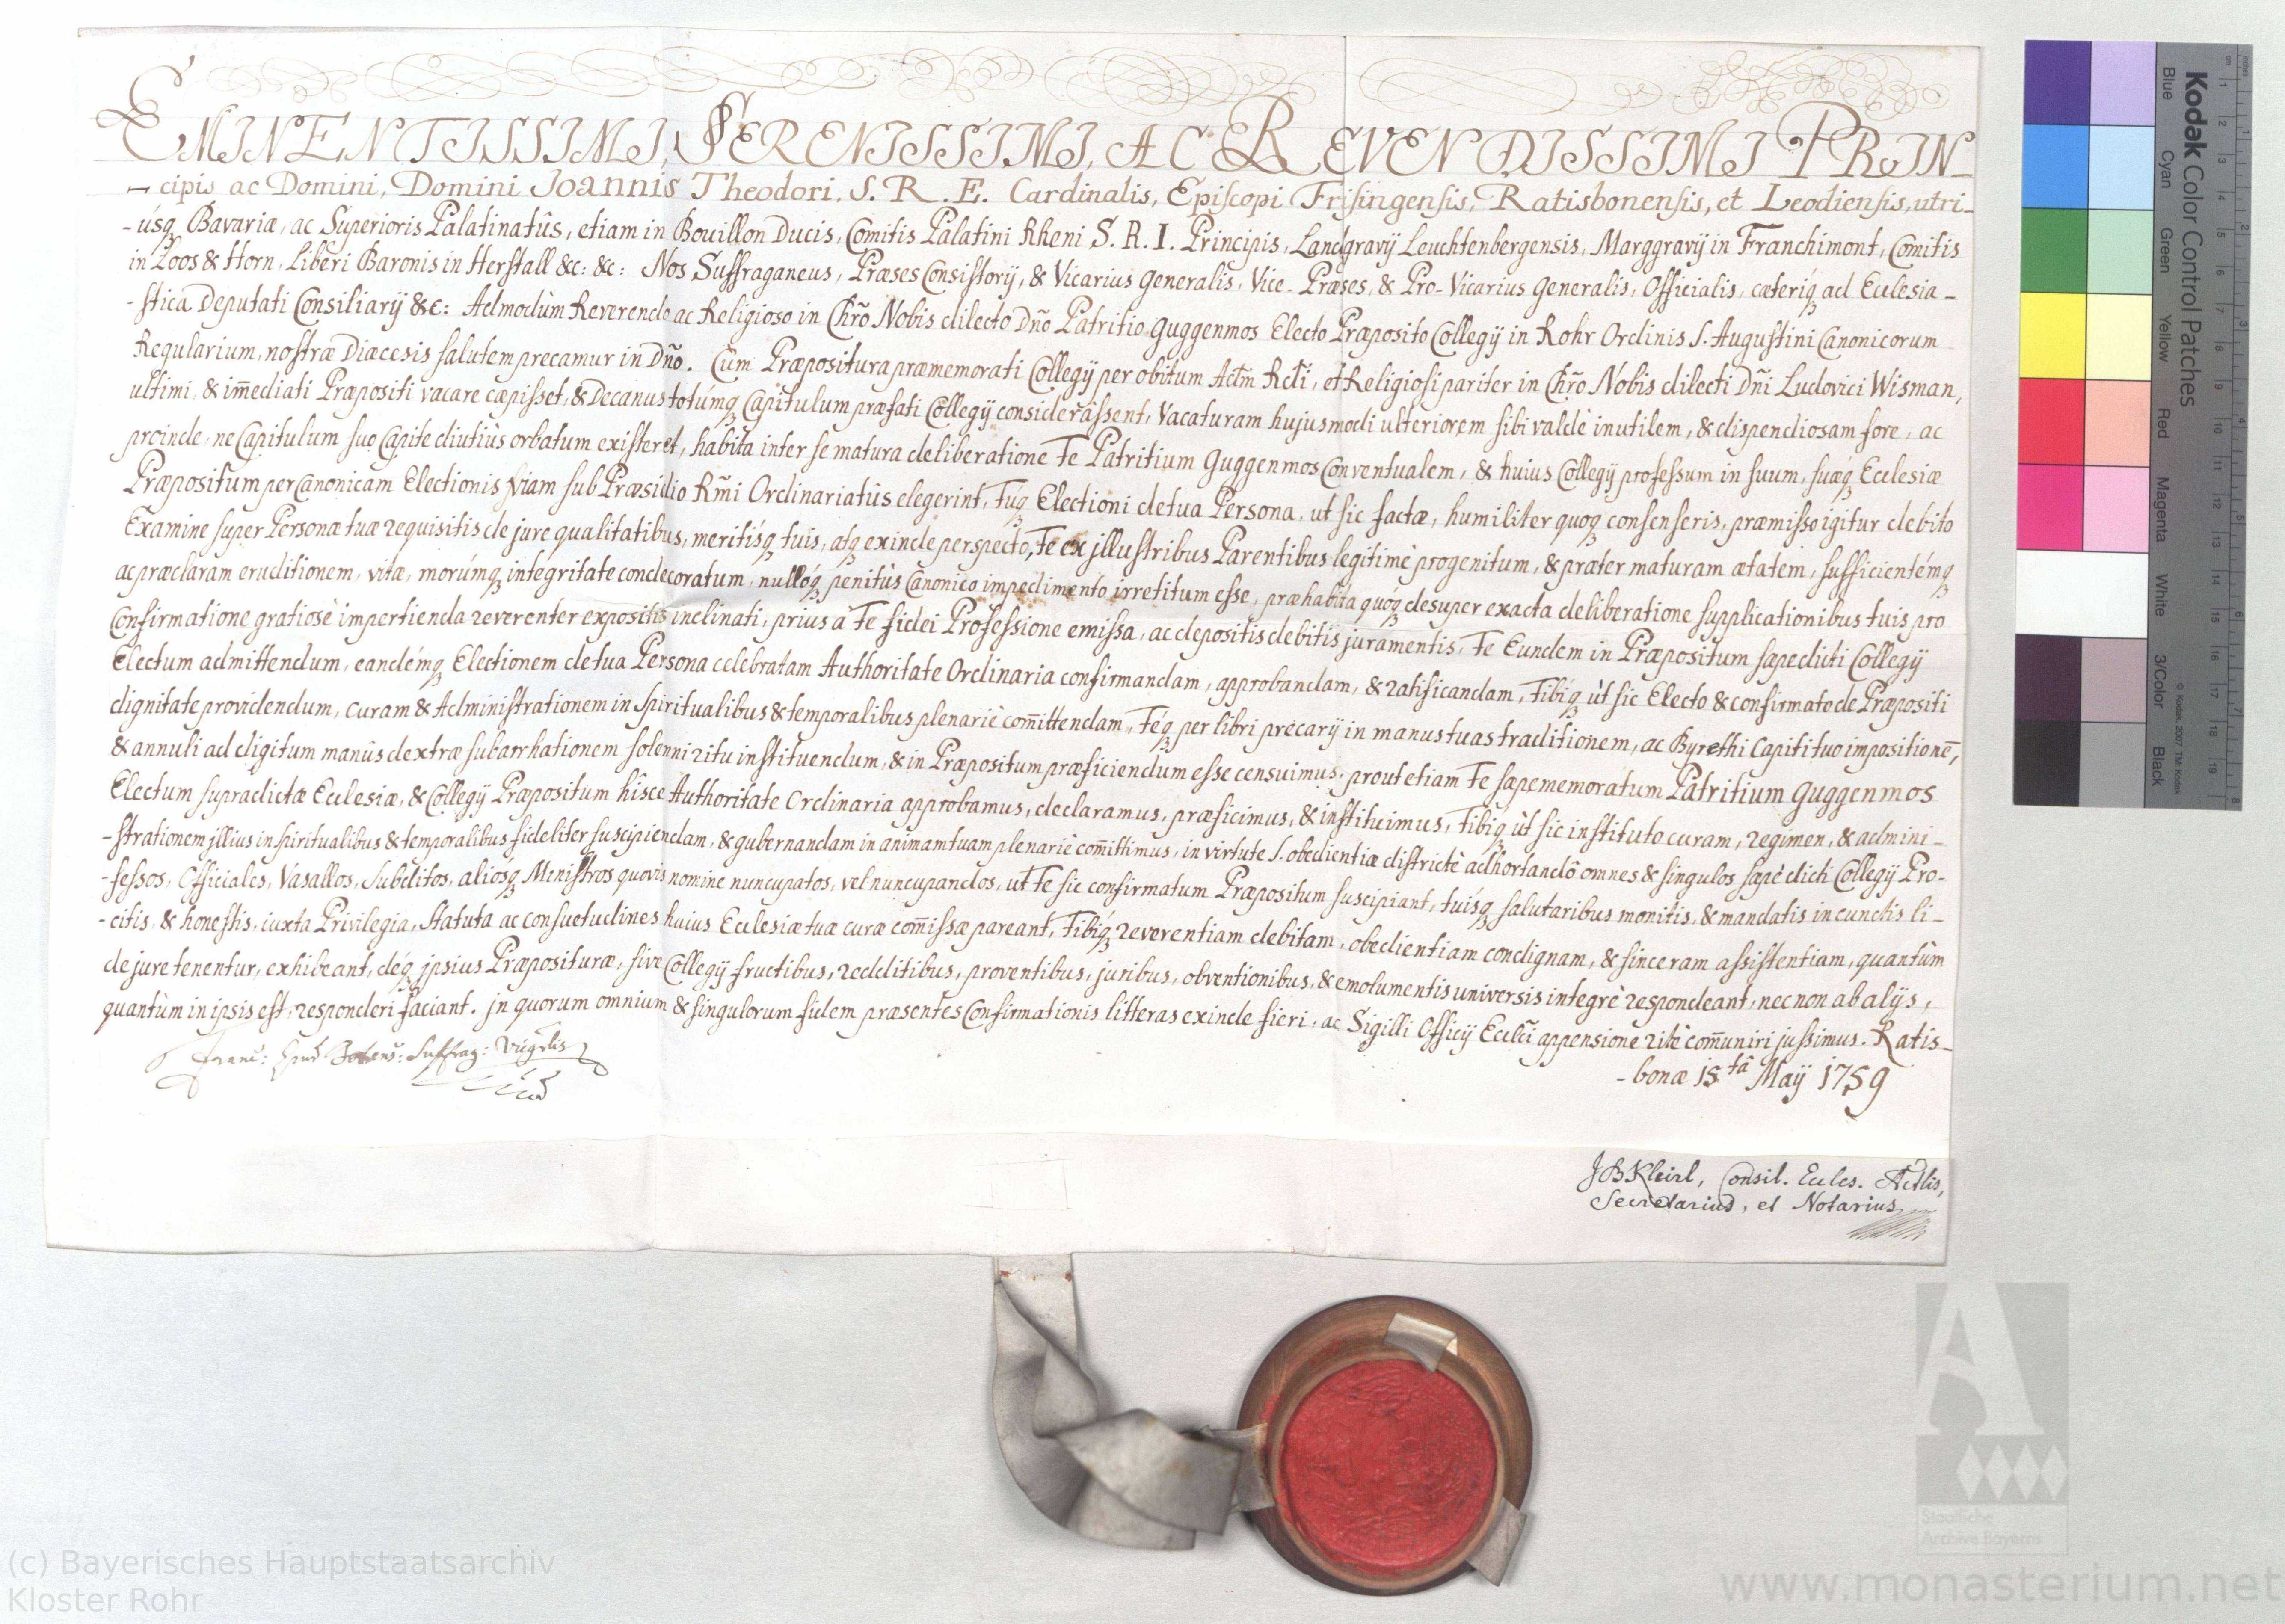 EMINENTISSIMI, SERENISSIMI, AC REVENDISSIMI PRIN-
-cipis ac Domini, Domini Joannis Theodori, S. R. E. Cardinalis, Episcopi Frisingensis, Ratisbonensis, et Leodiensis, utri-
-úsq₃ Bavariæ, ac Superioris Palatinatûs, etiam in Bouillon Ducis, Comitis Palatini Rheni S. R. I. Principis, Landgravÿ Leuchtenbergensis, Marggravÿ in Franchimont, Comitis
in Loos & Horn, Liberi Baronis in Herstall &c: &c: Nos Suffraganeus, Præses Consistorÿ, & Vicarius Generalis, Vice-Præses, & Pro-Vicarius Generalis, Officialis, cæteriq₃ ad Ecclesia-
-stica Deputati Consiliarÿ &c: Admodùm Reverendo ac Religioso in Chr̃o Nobis dilecto Dño Patritio Guggenmos Electo Præposito Collegÿ in Rohr Ordinis S. Augustini Canonicorum
Regularium, nostræ Diæcesis salutem precamur in Dño. Cùm Præpositura præmemorati Collegÿ per obitum Adm̃ Rdi, et Religiosi pariter in Chr̃o Nobis dilecti Dñi Ludovici Wisman,
ultimi, & im̃ediati Præpositi vacare cæpisset, & Decanus totúmq₃ Capitulum præfati Collegÿ considerâssent, Vacaturam hujusmodi ulteriorem sibi valdè inutilem, & dispendiosam fore, ac
proinde, ne Capitulum suo Capite diutiùs orbatum existeret, habita inter se matura deliberatione Te Patritium Guggenmos Conventualem, & huius Collegÿ professum in suum, suæq₃ Ecclesiæ
Præpositum per Canonicam Electionis viam sub Præsidio Rm̃i Ordinariatûs elegerint, Tuq₃ Electioni de tua Persona, ut sic factæ, humiliter quoq₃ consenseris, præmisso igitur debito
Examine super Personæ tuæ requisitis de jure qualitatibus, meritísq₃ tuis, atq₃ exinde perspecto, Te ex jllustribus Parentibus legitimè progenitum, & præter maturam ætatem, sufficientémq₃
ac præclaram eruditionem, vitæ, morúmq₃ integritate condecoratum, nullóq₃ penitùs Canonico impedimento irretitum esse, præhabita quóq₃ desuper exacta deliberatione supplicationibus tuis pro
Confirmatione gratiosè impertienda reverenter expositis inclinati, prius à Te fidei Professione emissa, ac depositis debitis juramentis, Te Eundem in Præpositum sæpedicti Collegÿ
Electum admittendum, eandémq₃ Electionem de tua Persona celebratam Authoritate Ordinaria confirmandam, approbandam, & ratificandam, Tibíq₃ ùt sic Electo & confirmato de Præpositi
dignitate providendum, curam & Administrationem in Spiritualibus & temporalibus plenariè com̃ittendam, Téq₃ per libri precarÿ in manus tuas traditionem, ac Byrethi Capiti tuo impositionẽ,
& annuli ad digitum manûs dextræ subarrhationem solenni ritu instituendum, & in Præpositum præficiendum esse censuimus, prout etiam Te sæpememoratum Patritium Guggenmos
Electum supradictæ Ecclesiæ, & Collegÿ Præpositum hisce Authoritate Ordinaria approbamus, declaramus, præficimus, & instituimus, Tibíq₃ ùt sic instituto curam, regimen, & admini-
-strationem jllius in spiritualibus & temporalibus fideliter suscipiendam, & gubernandam in animam tuam plenariè com̃ittimus, in virtute S. obedientiæ districtè adhortandô omnes & singulos sæpè dicti Collegÿ Pro-
-fessos, Officiales, Vasallos, Subditos, aliosq₃ Ministros quovis nomine nuncupatos, vel nuncupandos, ut Te sic confirmatum Præpositum suscipiant, tuísq₃ salutaribus monitis, & mandatis in cunctis li-
-citis, & honestis, iuxta Privilegia, Statuta ac consuetudines huius Ecclesiæ tuæ curæ com̃issæ pareant, Tibíq₃ reverentiam debitam, obedientiam condignam, & sinceram assistentiam, quantùm
de jure tenentur, exhibeant, déq₃ jpsius Præposituræ, sive Collegÿ fructibus, redditibus, proventibus, juribus, obventionibus, & emolumentis universis integrè respondeant, nec non ab alÿs,
quantùm in ipsis est, responderi faciant. jn quorum omnium & singulorum fidem præsentes Confirmationis litteras exinde fieri, ac Sigilli Officÿ Ecclĩci appensione ritè com̃uniri jussimus. Ratis-
-bonæ 18tâ Maÿ 1759
Suffrag:
JB Kleirl, Consil. Eccles. Actlis,
Secretarius, et Notarius
Kodak Color Control Patches
© Kodak, 2007 TM: Kodak
Blue Cyan Green Yellow Red Magenta White 3/Color Black
Staatliche
Archive Bayerns
(c) Bayerisches Hauptstaatsarchiv
Kloster Rohr
www.monasterium.net